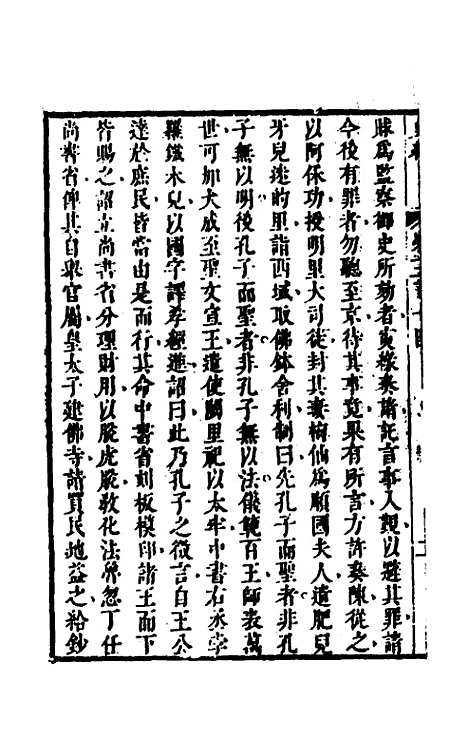 賕為監察御史所劾者夤緣奏請託言事入覲以避其罪請
今後有罪者勿聽至京待其事竟果有所言方許奏陳從之
以阿保功授明里大司徒封其妻梅仙為順國夫人遣肥兒
牙兒迷的里詣西域取佛鉢舍利制曰先孔子而聖者非孔
子無以明後孔子而聖者非孔子無以法儀範百王師表萬
世可加大成至聖文宣王遣使闕里祀以太牢中書右丞孛
羅鐵木兒以國字譯孝經進詔曰此乃孔子之微言自王公
達於庶民皆當由是而行其命中書省刻板模印諸王而下
皆賜之詔立尚書省分理財用以脫虎脫教化法魯忽丁任
尚書省俾其自舉官屬皇太子建佛寺請買民地益之給鈔